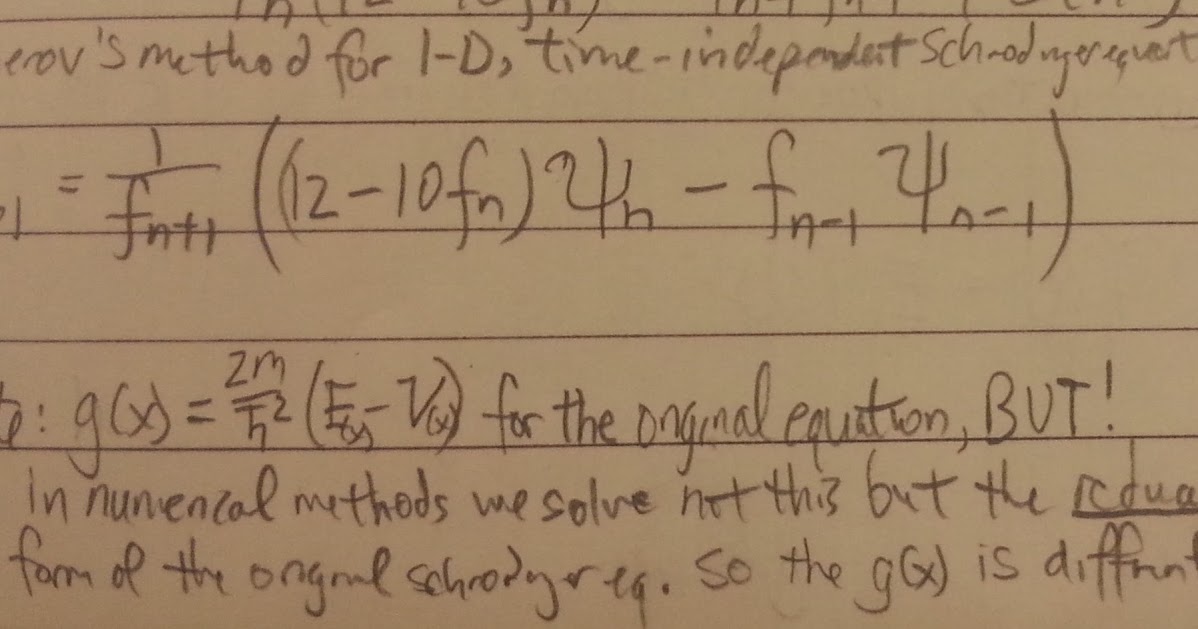 erov's method for 1-D, time-independent Schrodyngerequat
1 = 1/f_{n+1} ((12-10f_n)ψ_n - f_{n-1} ψ_{n-1})
: g(x) = 2m/ħ² (E(x) - V(x)) for the original equation, BUT!
in numerical methods we solve not this but the
form of the original schrodynger eq. so the g(x) is diffrent